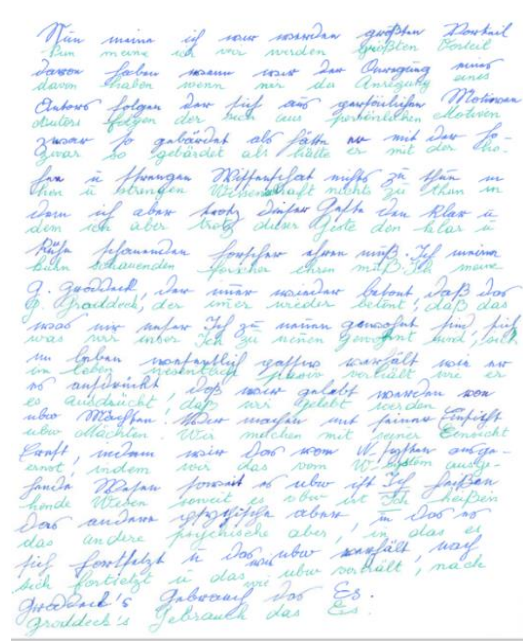 Nun meine ich wir werden größten Vorteil
Nun meine ich wir werden größten Vorteil
davon haben wenn wir der Anregung eines
davon haben wenn wir der Anregung eines
Autors folgen der sich aus persönlichen Motiven
Autors folgen der sich aus persönlichen Motiven
zwar so gebärdet als hätte er mit der ho-
zwar so gebärdet als hätte er mit der ho-
hen u strengen Wissenschaft nichts zu thun in
hen u strengen Wissenschaft nichts zu thun in
dem ich aber trotz dieser Geste den klar u
dem ich aber trotz dieser Geste den klar u
kühn schauenden Forscher ehren muß. Ich meine
kühn schauenden Forscher ehren muß. Ich meine
G. Groddeck, der imer wieder betont, daß das
G. Groddeck, der imer wieder betont, daß das
was wir unser Ich zu nenen gewohnt sind, sich
was wir unser Ich zu nenen gewohnt sind, sich
im Leben wesentlich passiv verhält wie er
im Leben wesentlich passiv verhält wie er
es ausdrückt, daß wir gelebt werden von
es ausdrückt, daß wir gelebt werden von
ubw Mächten. Wir machen mit seiner Einsicht
ubw Mächten. Wir machen mit seiner Einsicht
Ernst, indem wir das vom W-System ausge-
ernst, indem wir das vom W-System ausge-
hende Wesen soweit es vbw ist Ich heißen
hende Wesen soweit es vbw ist Ich heißen
das andere psychische aber, in das es
das andere psychische aber, in das es
sich fortsetzt u das wie ubw verhält, nach
sich fortsetzt u das wie ubw verhält, nach
Groddeck's Gebrauch das Es.
Groddeck's Gebrauch das Es.